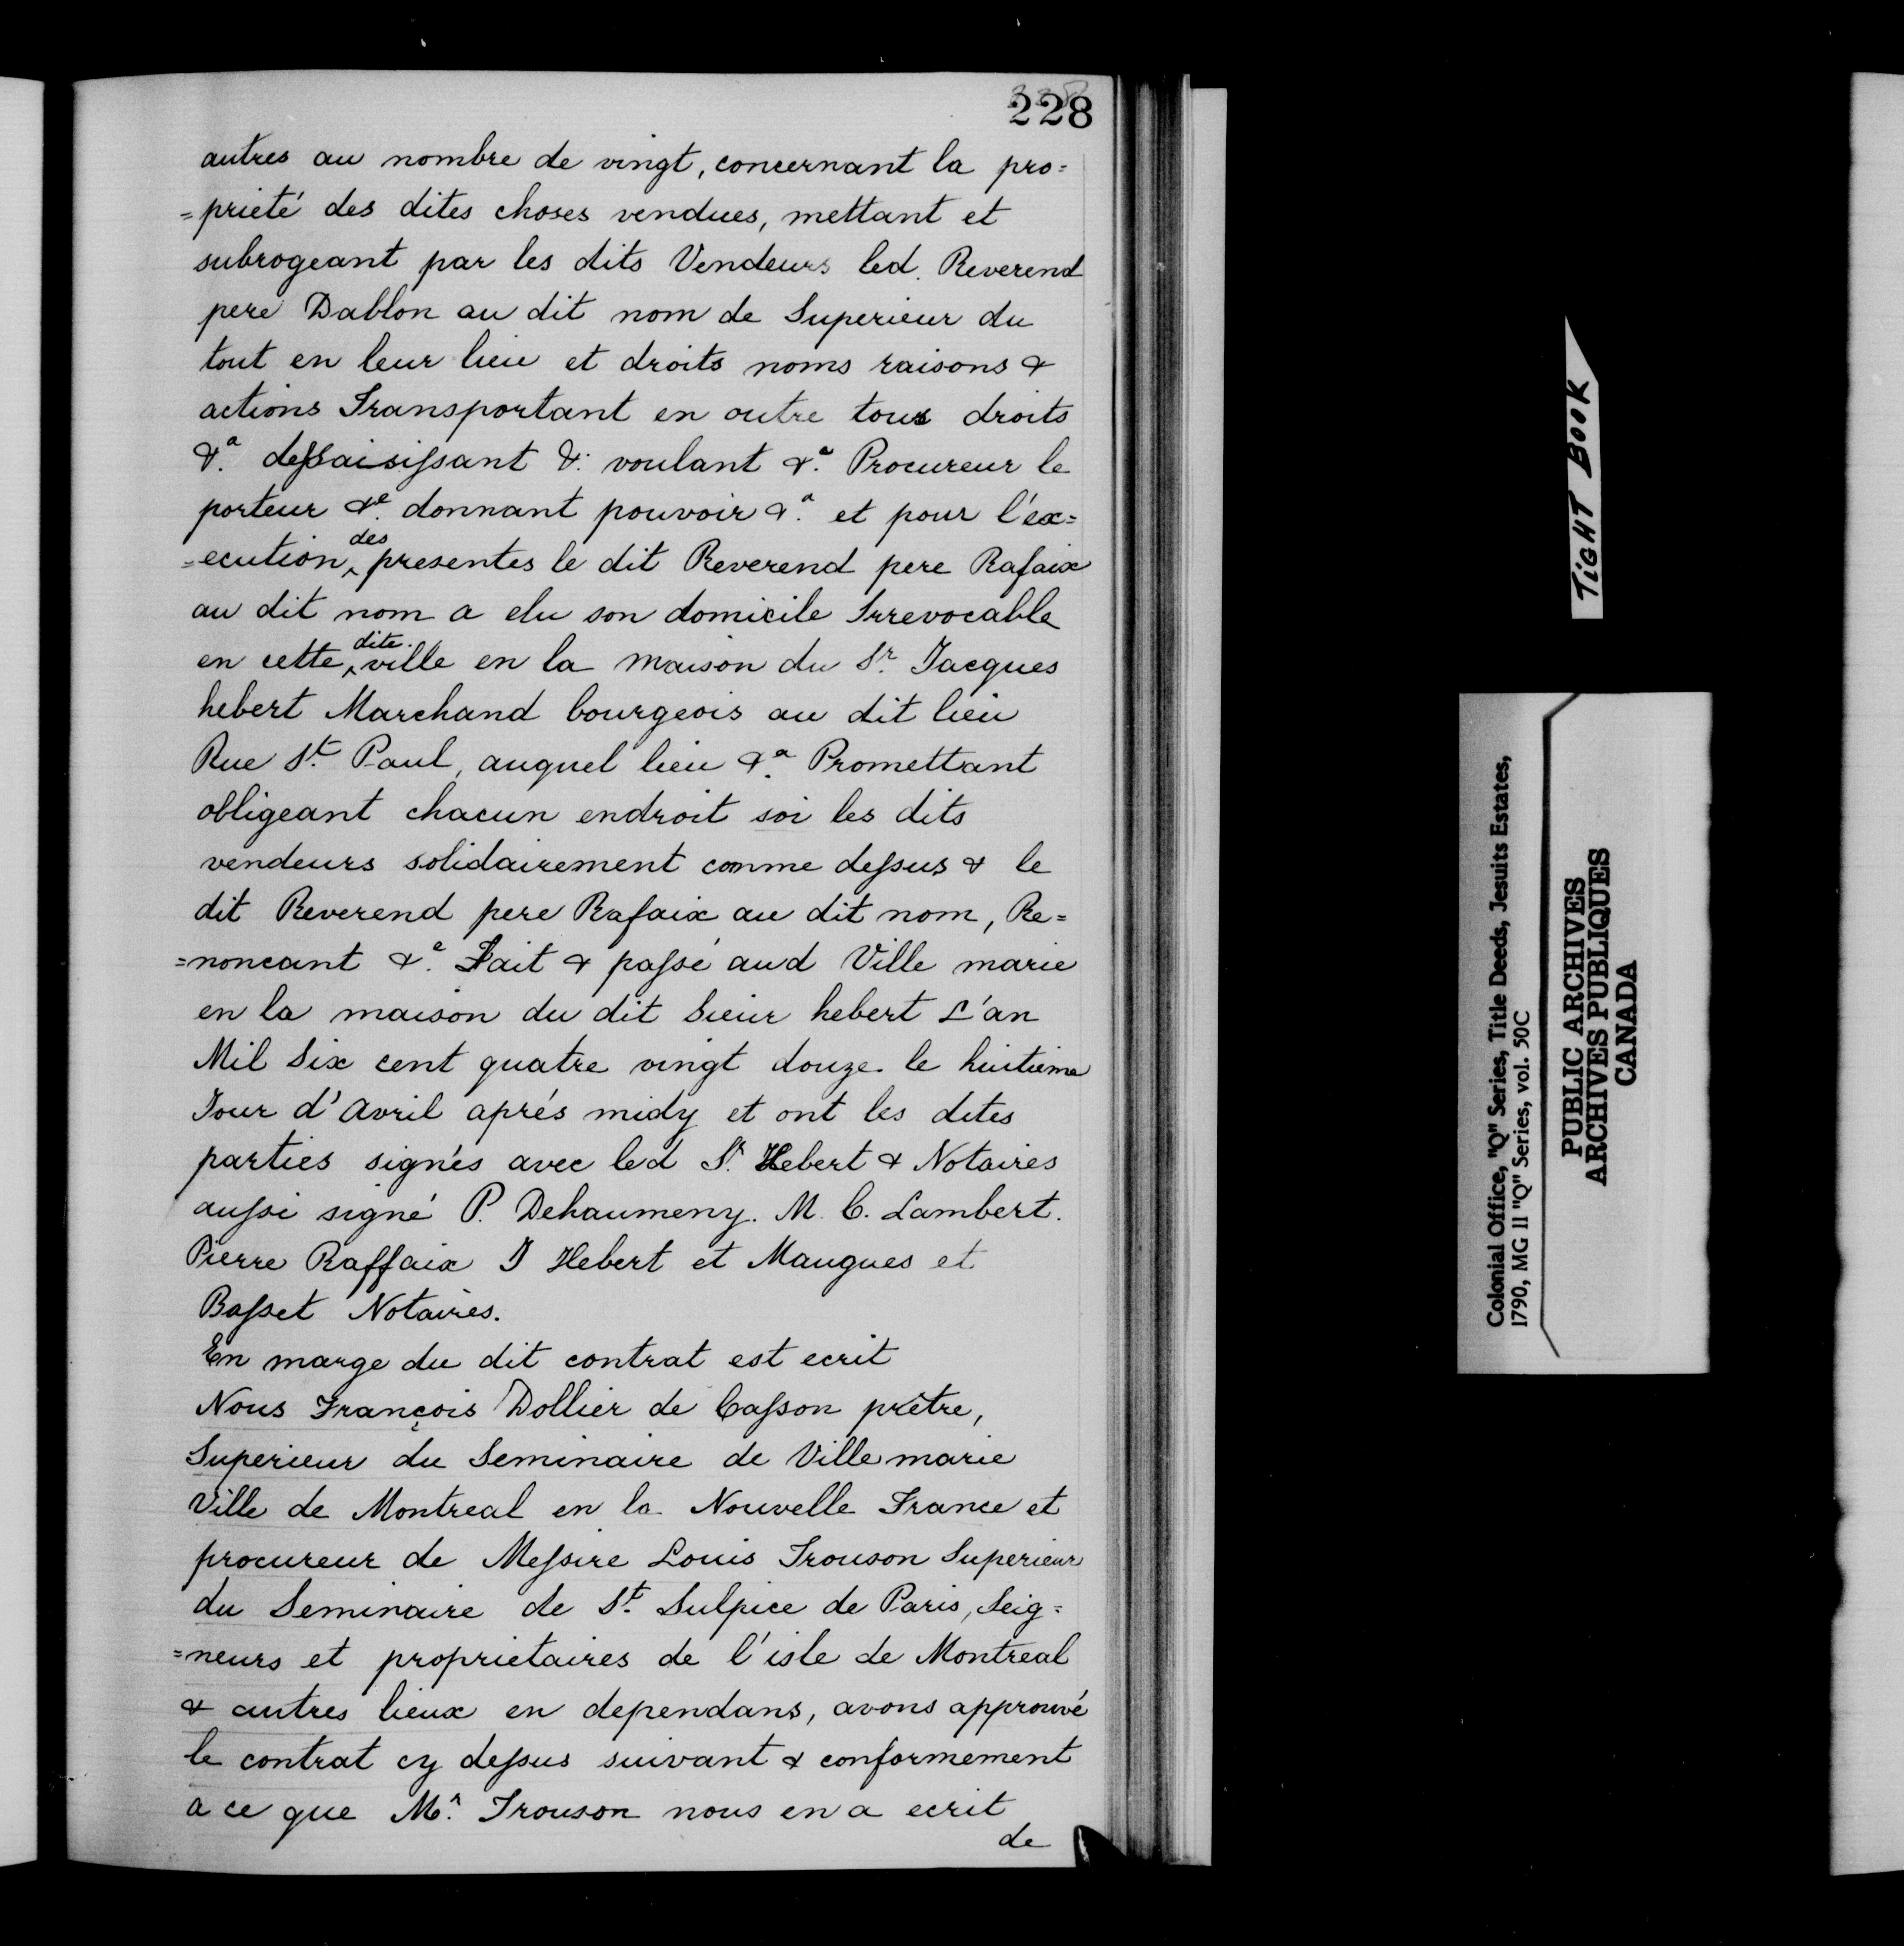 228
autres au nombre de vingt, concernant la pro=
=prieté des dites choses vendues, mettant et
subrogeant par les dits Vendeurs led. Reverend
pere Dablon au dit nom de Superieur du
tout en leur lieu et droits noms raisons &
actions Transportant en outre tous droits
&a. dessaisissant &. voulant &a. Procureur le
porteur &e. donnant pouvoir &a. et pour l'ex=
=ecution des presentes le dit Reverend pere Rafaix
au dit nom a elu son domicile Irrevocable
en cette dite ville en la maison du Sr. Jacques
hebert Marchand bourgeois au dit lieu
Rue St. Paul, auquel lieu &a. Promettant
obligeant chacun endroit soi les dits
vendeurs solidairement comme dessus & le
dit Reverend pere Rafaix au dit nom, Re=
=noncant &a. Fait & passé aud Ville marie
en la maison du dit Sieur hebert L'an
Mil Six cent quatre vingt douze le huitieme
Jour d'Avril aprés midy et ont les dites
parties signés avec led Sr. Hebert & Notaires
aussi signé P. Dehaumeny. M. C. Lambert.
Pierre Raffaix J Hebert et Maugues et
Basset Notaires.
En marge du dit contrat est ecrit
Nous François Dollier de Casson prêtre,
Superieur du Seminaire de Ville marie
Ville de Montreal en la Nouvelle France et
procureur de Messire Louis Trouson Superieur
du Seminaire de St. Sulpice de Paris, Seig=
=neurs et proprietaires de l'isle de Montreal
& autres lieux en dependans, avons approuvé
le contrat cy dessus suivant & conformement
a ce que Mr. Trouson nous en a ecrit
de
TIGHT BOOK
Colonial Office, "Q" Series, Title Deeds, Jesuits Estates,
1790, MG 11 "Q" Series, vol. 50C
PUBLIC ARCHIVES
ARCHIVES PUBLIQUES
CANADA